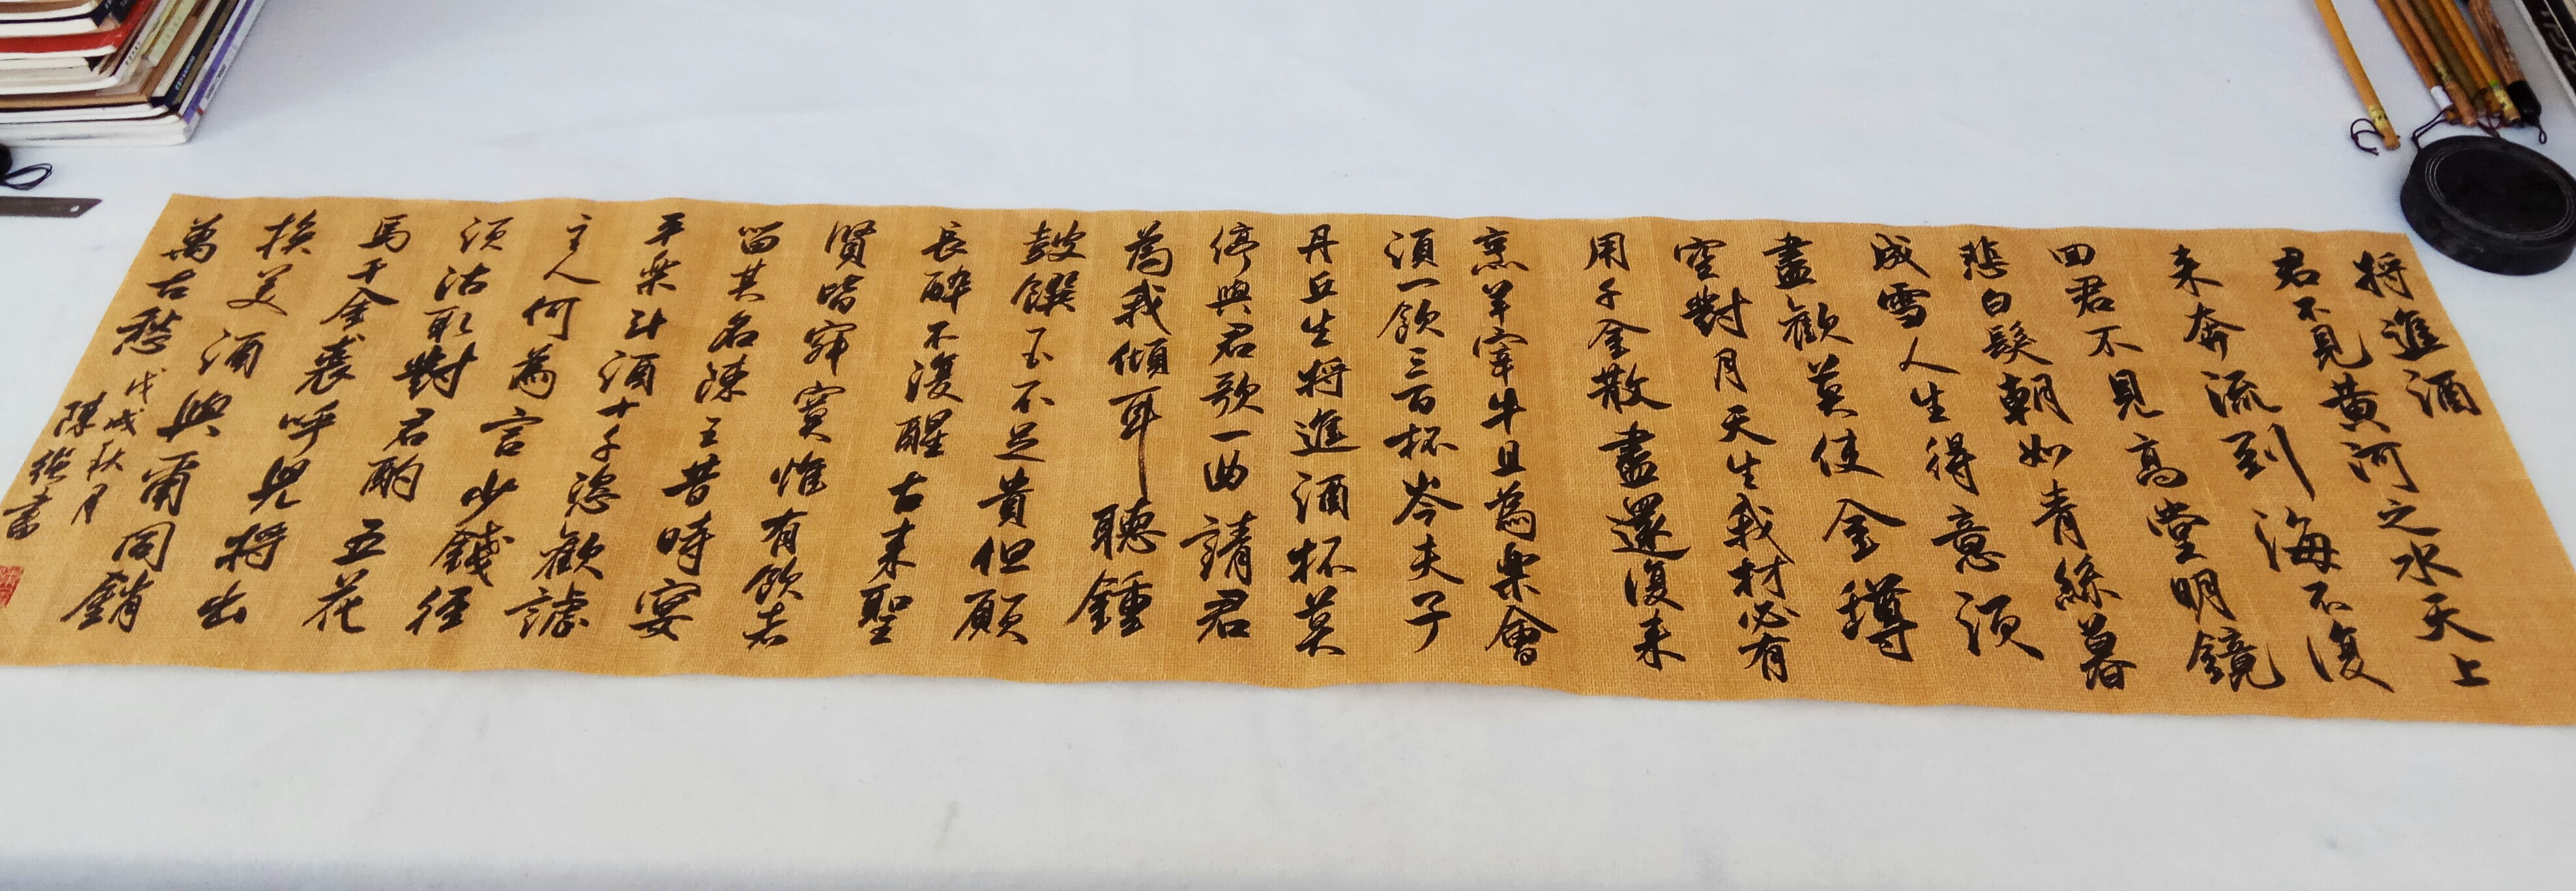 将進酒
君不見黄河之水天上
来奔流到海不復
回君不見高堂明鏡
悲白髮朝如青絲暮
成雪人生得意須
盡歡莫使金樽
空對月天生我材必有
用千金散盡還復来
烹羊宰牛且為樂會
須一飲三百杯岑夫子
丹丘生将進酒杯莫
停與君歌一曲請君
為我傾耳聽鍾
鼓饌玉不足貴但願
長醉不復醒古来聖
賢皆寂寞惟有飲者
留其名陳王昔時宴
平樂斗酒十千恣歡謔
主人何為言少錢徑
須沽取對君酌五花
馬千金裘呼兒将出
换美酒與爾同銷
萬古愁
戊戌秋月
陳 書